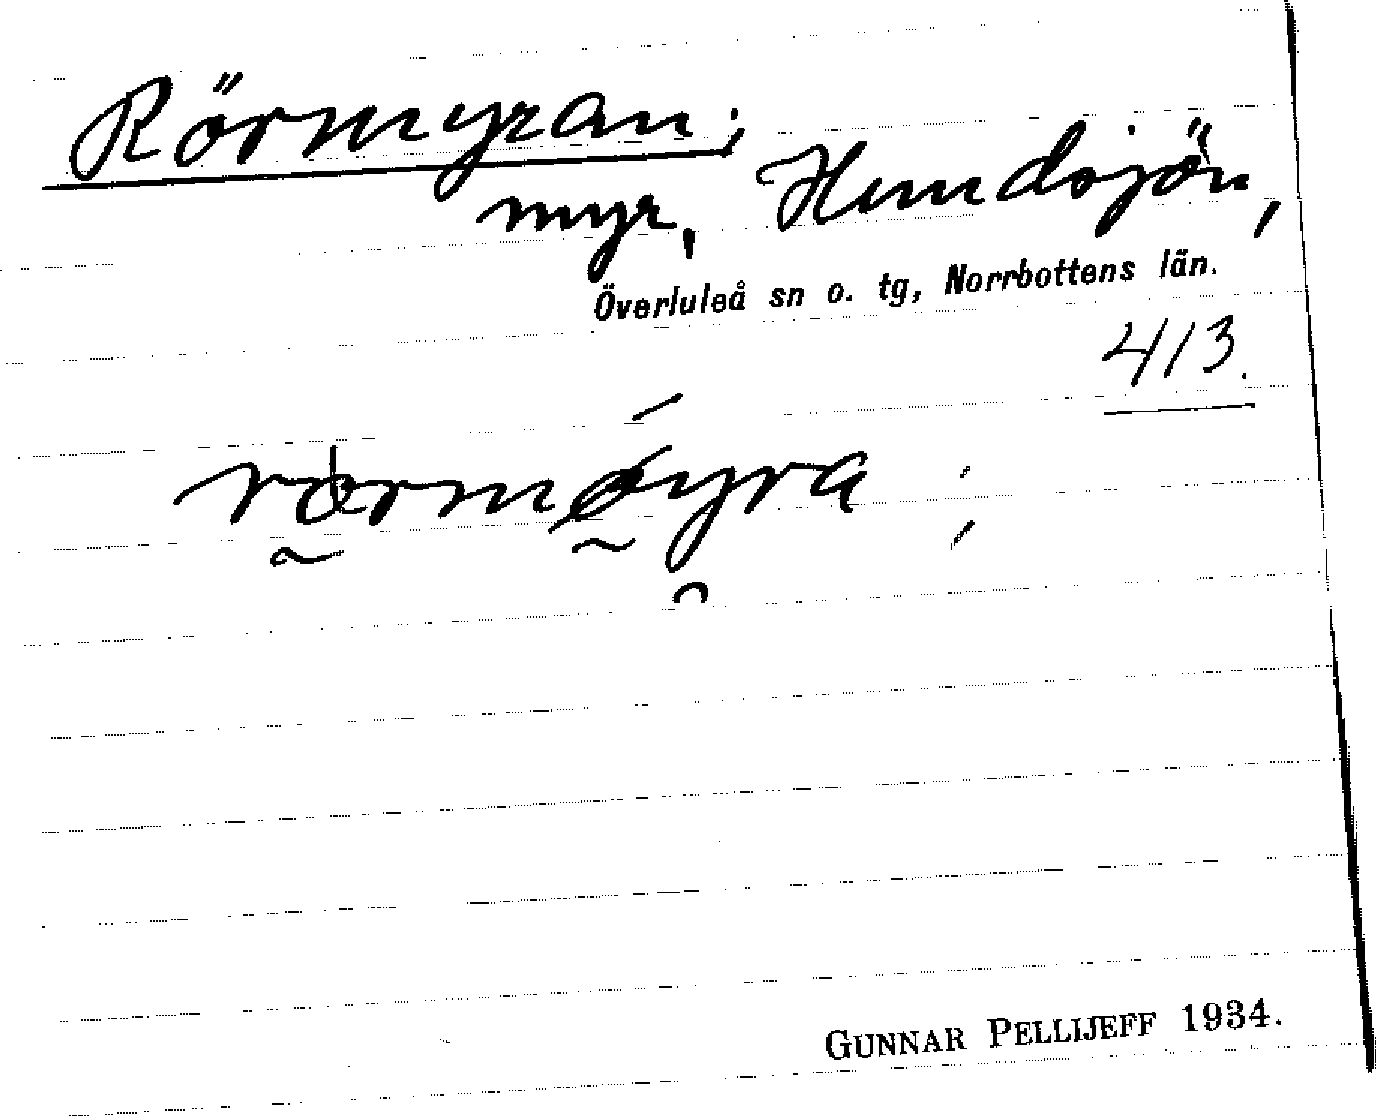 Rörmyran;
myr, Hundsjön,
Överluleå sn o. tg, Norrbottens län.
413.
GUNNAR PELLIJEFF 1934.